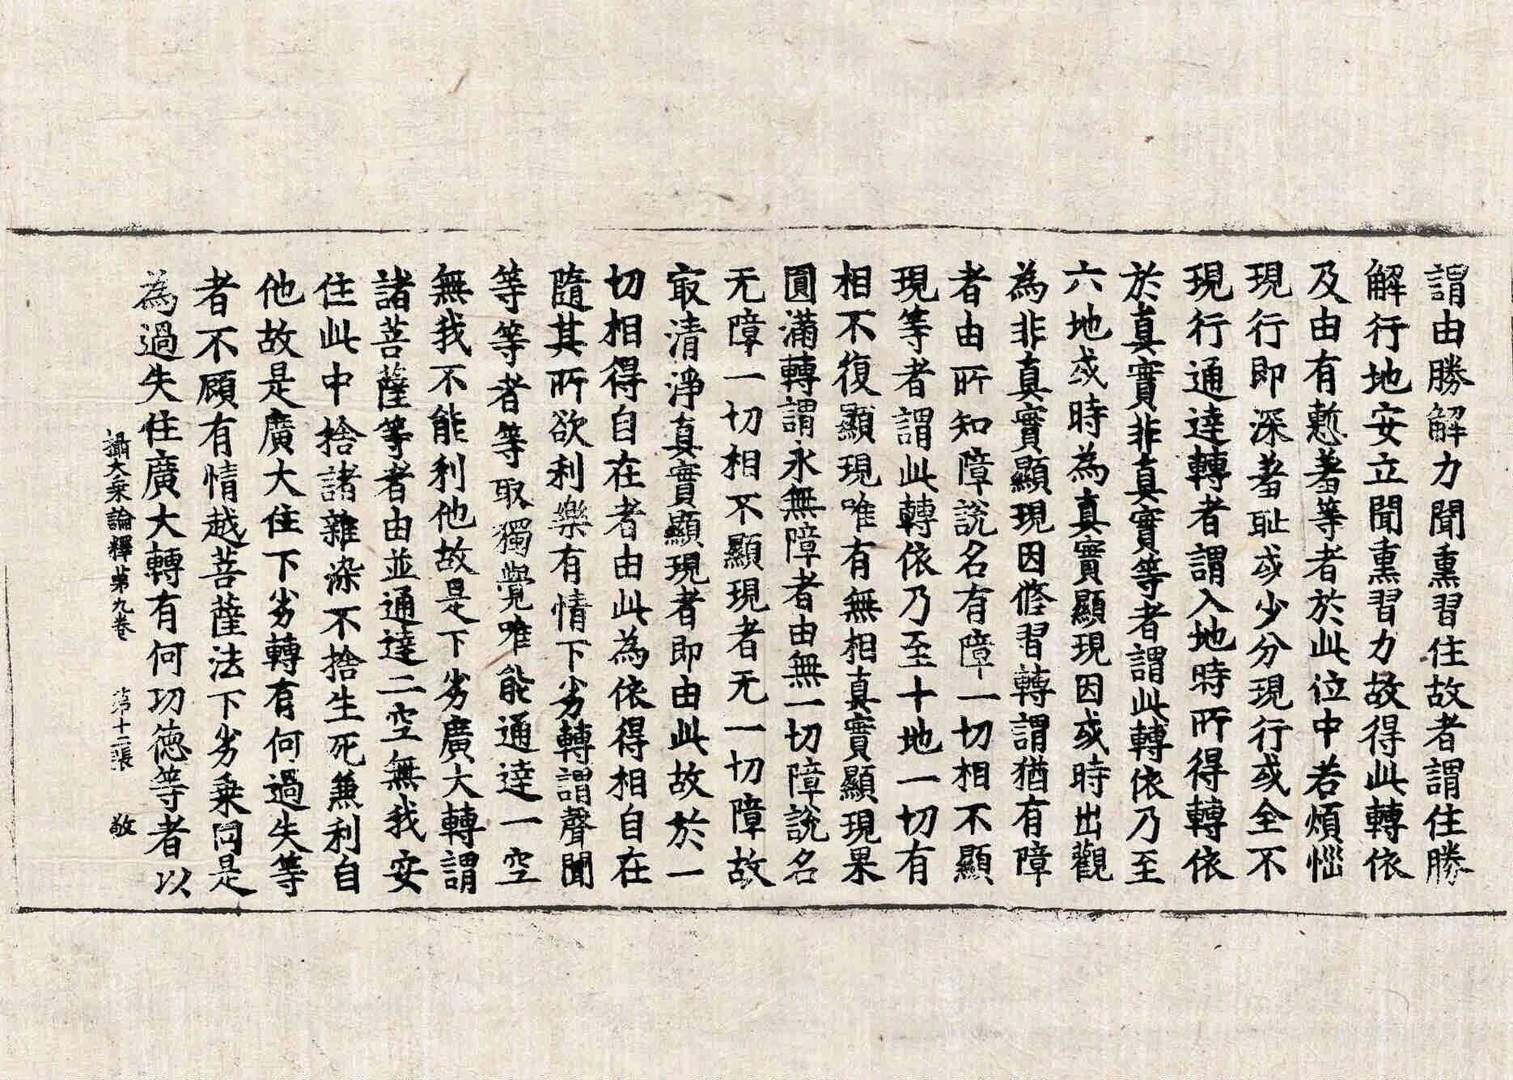 謂由勝解力聞熏習住故者謂住勝
解行地安立聞熏習力故得此轉依
及由有慙羞等者於此位中若煩惱
現行即深羞耻或少分現行或全不
現行通達轉者謂入地時所得轉依
於真實非真實等者謂此轉依乃至
六地或時為真實顯現因或時出觀
為非真實顯現因俢習轉謂猶有障
者由所知障說名有障一切相不顯
現等者謂此轉依乃至十地一切有
相不復顯現唯有無相真實顯現果
圓滿轉謂永無障者由無一切障說名
无障一切相不顯現者无一切障故
㝡清淨真實顯現者即由此故於一
切相得自在者由此為依得相自在
隨其所欲利樂有情下劣轉謂聲聞
等等者等取獨覺唯能通達一空
無我不能利他故是下劣廣大轉謂
諸菩薩等者由並通達二空無我安
住此中捨諸雜染不捨生死兼利自
他故是廣大住下劣轉有何過失等
者不顧有情越菩薩法下劣乗同是
為過失住廣大轉有何功徳等者以
攝大乗論釋第九卷 第十二張 敬